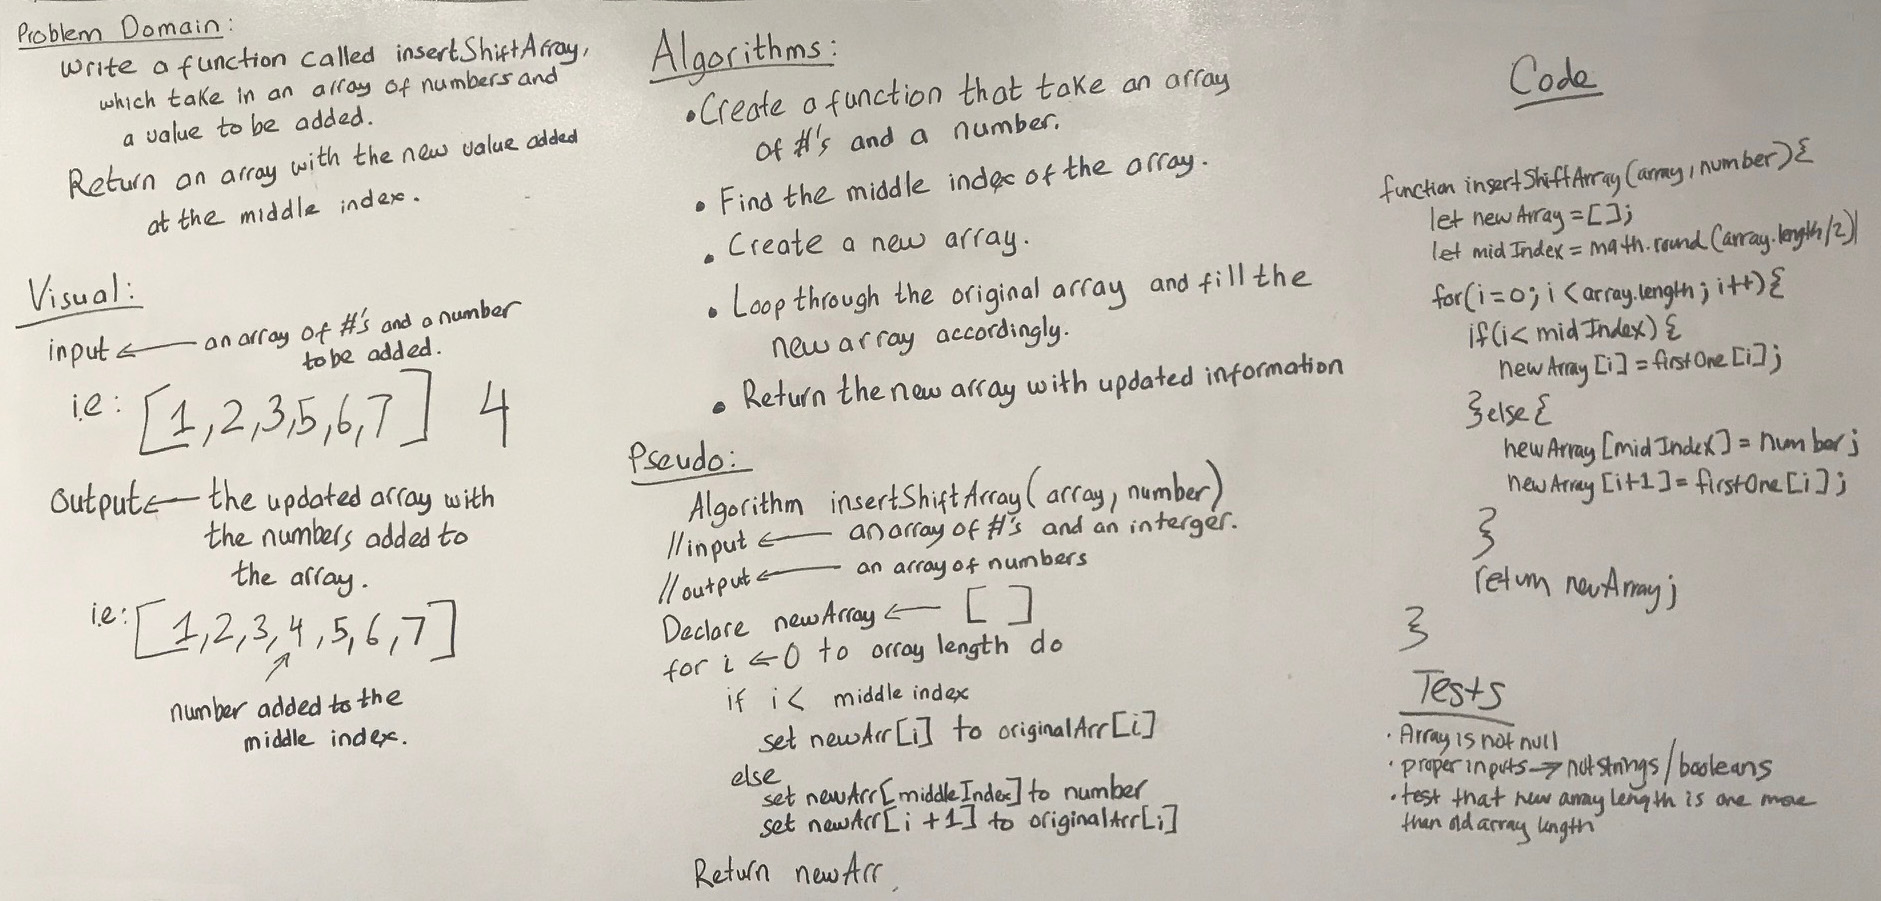 Problem Domain:
Write a function called insertShiftArray,
which take in an array of numbers and
a value to be added.
Return an array with the new value added
at the middle index.
Visual:
input ← an array of #'s and a number
to be added.
i.e: [1,2,3,5,6,7] 4
Output ← the updated array with
the numbers added to
the array.
i.e: [1,2,3,4,5,6,7]
number added to the
middle index.
Algorithms:
• Create a function that take an array
of #'s and a number.
• Find the middle index of the array.
• Create a new array.
• Loop through the original array and fill the
new array accordingly.
• Return the new array with updated information
Pseudo:
Algorithm insertShiftArray(array, number)
//input ← an array of #'s and an interger.
//output ← an array of numbers
Declare newArray ← [ ]
for i ← 0 to array length do
if i < middle index
set newArr[i] to originalArr[i]
else
set newArr[middleIndex] to number
set newArr[i+1] to originalArr[i]
Return newArr
Code
function insertShiftArray(array, number){
let newArray = [];
let midIndex = math.round(array.length/2)
for(i=0; i<array.length; i++){
if(i<midIndex){
newArray[i] = firstOne[i];
}else{
newArray[midIndex] = number;
newArray[i+1] = firstOne[i];
}
return newArray;
}
Tests
• Array is not null
• proper inputs → not strings/booleans
• test that new array length is one more
than old array length